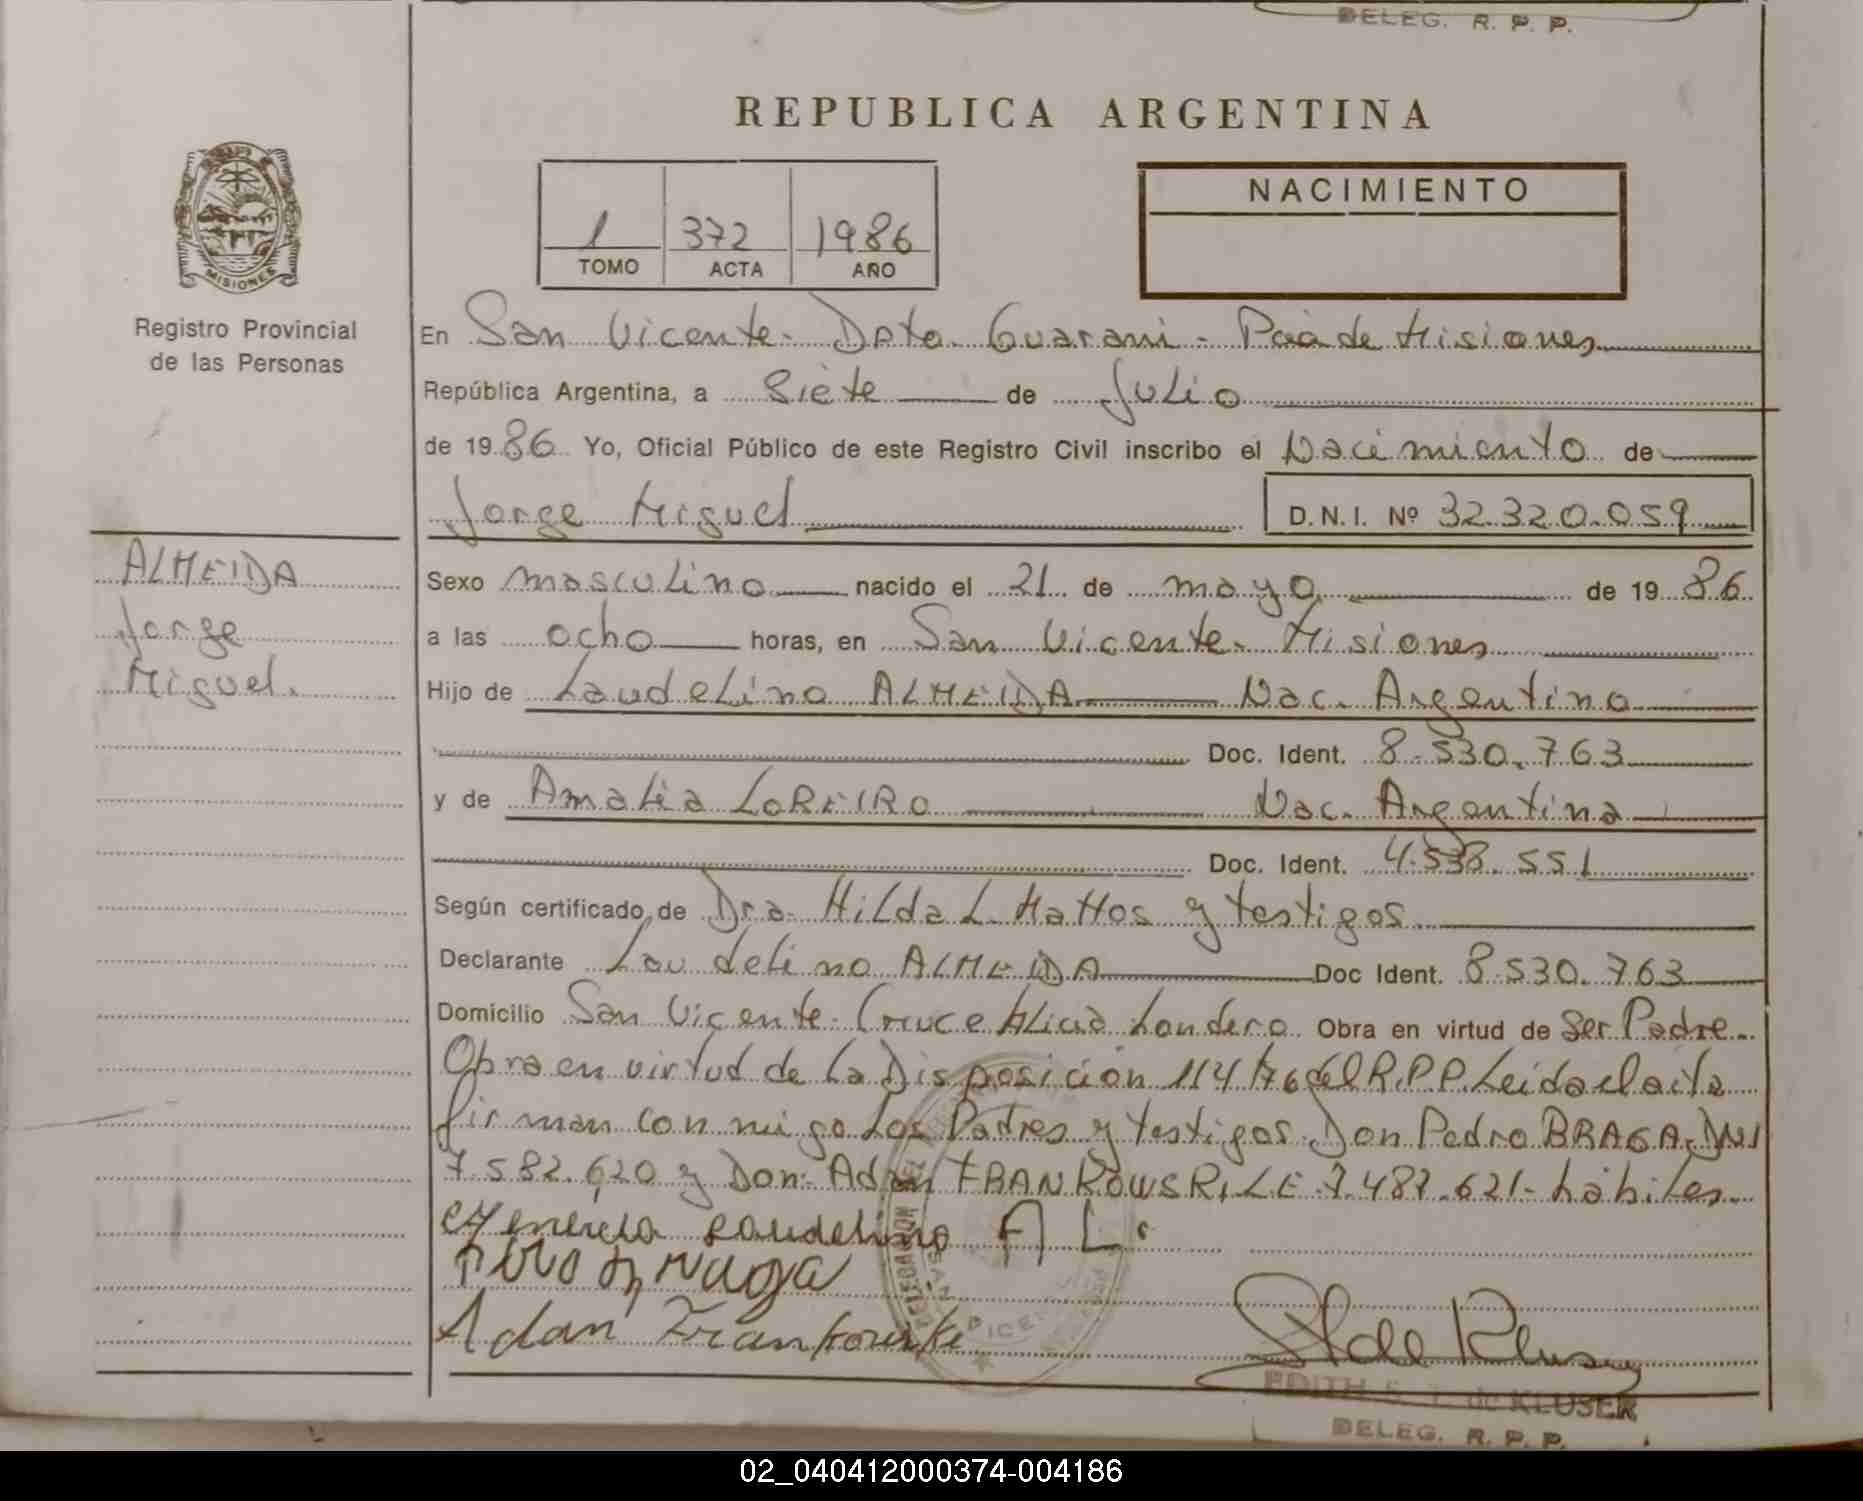 DELEG. R. P. P.
REPUBLICA ARGENTINA
1 372 1986
TOMO ACTA AÑO
NACIMIENTO
MISIONES
Registro Provincial
de las Personas
En San Vicente - Dpto Guarani - Pcia de Misiones
República Argentina, a Siete de Julio
de 1986 Yo, Oficial Público de este Registro Civil inscribo el Nacimiento de
Jorge Miguel D.N.I. Nº 32.320.059
ALMEIDA
Jorge
Miguel.
Sexo masculino nacido el 21 de mayo de 1986
a las ocho horas, en San Vicente - Misiones
Hijo de Laudelino ALMEIDA Nac. Argentino
Doc. Ident. 8.530.763
y de Amalia LOREIRO Nac. Argentina
Doc. Ident. 4.538.551
Según certificado de Dra. Hilda L. Mattos y testigos
Declarante Laudelino ALMEIDA Doc Ident. 8.530.763
Domicilio San Vicente - Cruce Londero Obra en virtud de Ser Padre
Obra en virtud de la Disposicion 114/76 del R.P.P. Leida el acta
firman con migo los Padres y testigos Don Pedro BRAGA, DNI
7.582.620 y Don Adan FRANKOWSKI, LE 7.487.621 - habiles
laudelino A L.
Adan Frankouske
EDITH S. de KLUSER
DELEG. R. P. P.
02_040412000374-004186